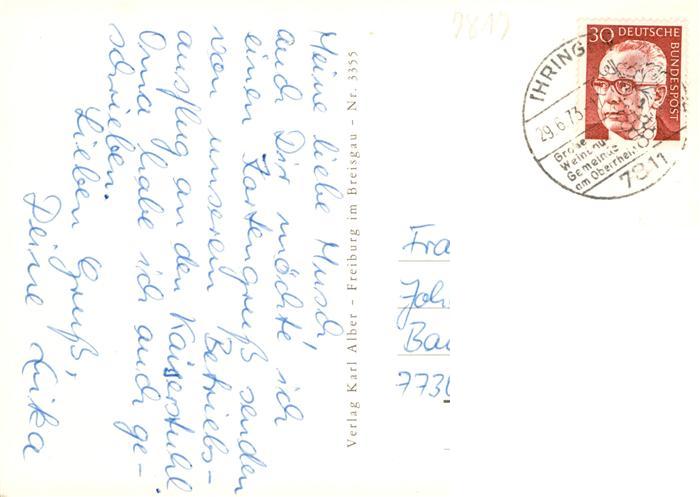 Meine liebe Musch,
auch Dir möchte ich
einen Kartengruß senden
von unserem Betriebs-
ausflug an den Kaiserstuhl
Oma habe ich auch ge-
schrieben.
Lieben Gruß,
Deine Lika
Verlag Karl Alber – Freiburg im Breisgau – Nr. 3355
9819
30 DEUTSCHE
BUNDESPOST
IHRING
29.6.73
Große
Weinbau
Gemeinde
am Oberrhein
7811
Fra
Joh
Bau
7730